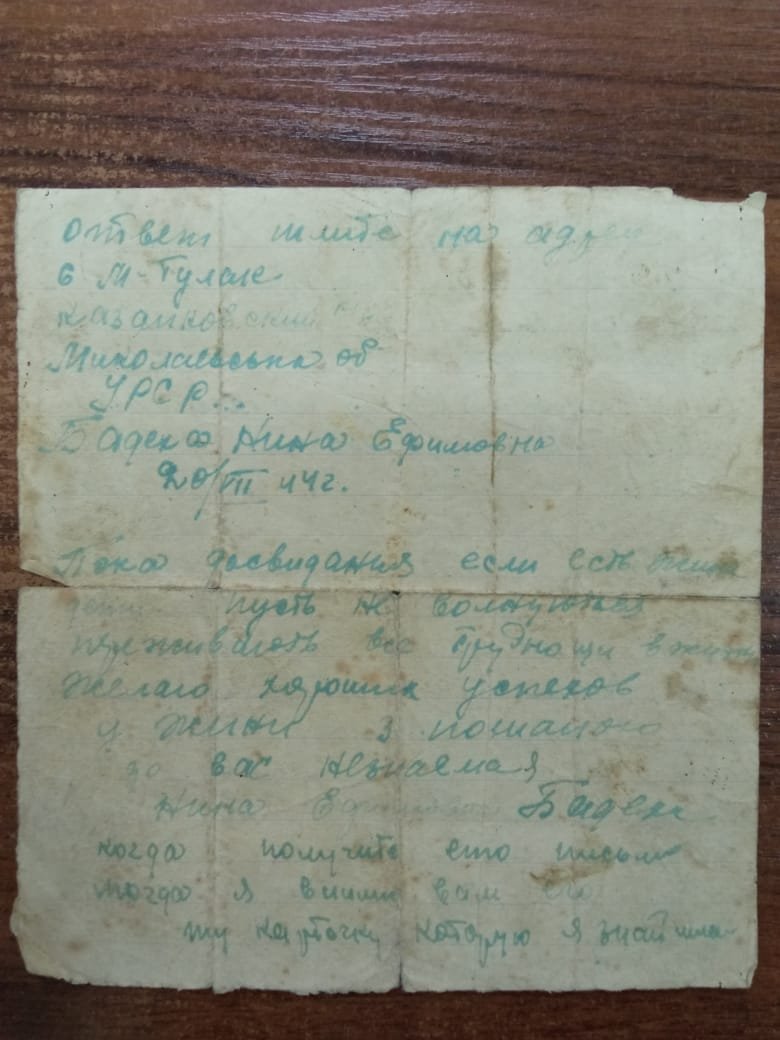 ответ шлите на адрес
с М-Гулак
Казанковский
Миколаевська об
УРСР...
Бадека Нина Ефимовна
20/III 44г.
Пока досвидания если есть
пусть не волнуються
переживають все труднощи в жизни
Желаю хороших успехов
у жизни з пошаною
до вас незнаемая
Нина Бадека
когда получите ето письмо
тогда я вам
ту карточку которую я знайшла